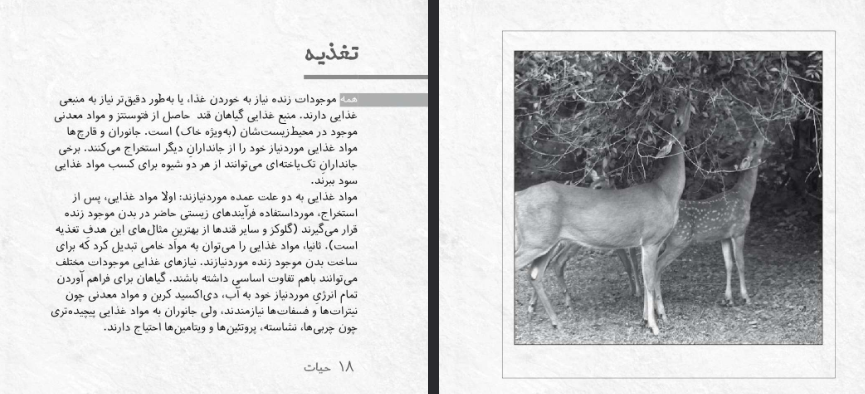 تغذیه
همه موجودات زنده نیاز به خوردن غذا، یا به‌طور دقیق‌تر نیاز به منبعی
غذایی دارند. منبع غذایی گیاهان قند حاصل از فتوسنتز و مواد معدنی
موجود در محیط‌زیست‌شان (به‌ویژه خاک) است. جانوران و قارچ‌ها
مواد غذایی موردنیاز خود را از جاندارانِ دیگر استخراج می‌کنند. برخی
جاندارانِ تک‌یاخته‌ای می‌توانند از هر دو شیوه برای کسب مواد غذایی
سود ببرند.
مواد غذایی به دو علت عمده موردنیازند: اولا مواد غذایی، پس از
استخراج، مورداستفاده فرآیندهای زیستی حاضر در بدن موجود زنده
قرار می‌گیرند (گلوکز و سایر قندها از بهترین مثال‌های این هدفِ تغذیه
است). ثانیا، مواد غذایی را می‌توان به مواد خامی تبدیل کرد که برای
ساخت بدن موجود زنده موردنیازند. نیازهای غذایی موجودات مختلف
می‌توانند باهم تفاوت اساسی داشته باشند. گیاهان برای فراهم آوردن
تمام انرژیِ موردنیاز خود به آب، دی‌اکسید کربن و مواد معدنی چون
نیترات‌ها و فسفات‌ها نیازمندند، ولی جانوران به مواد غذایی پیچیده‌تری
چون چربی‌ها، نشاسته، پروتئین‌ها و ویتامین‌ها احتیاج دارند.
۱۸ حیات